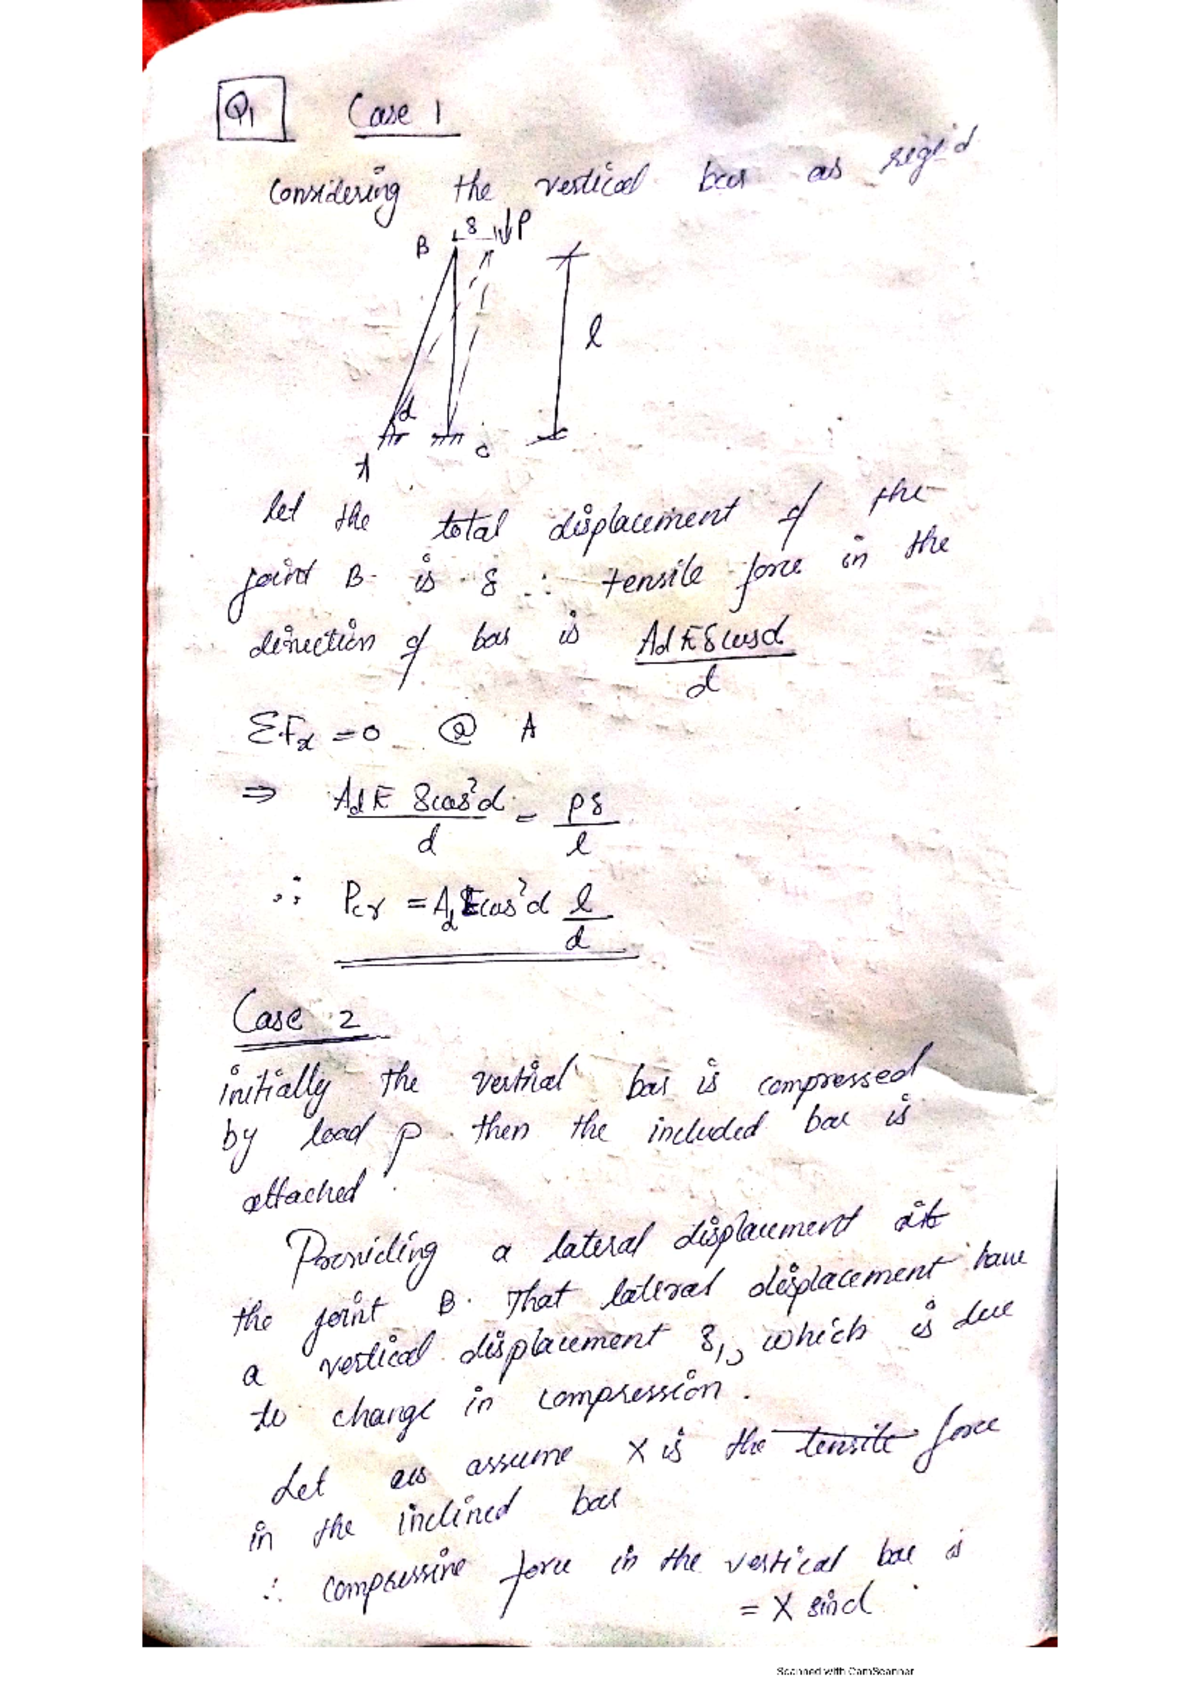 Q1 Case 1
Considering the vertical bar as rigid
δ P
B
l
α
A C
let the total displacement of the
joint B is δ ∴ tensile force in the
direction of bar is AdEδcosα / d
ΣFx = 0 @ A
⇒ AdE δcos²α / d = Pδ / l
∴ Pcr = AdEcos²α l / d
Case 2
initially the vertical bar is compressed
by load P then the included bar is
attached.
Providing a lateral displacement at
the joint B. That lateral displacement have
a vertical displacement δ1, which is due
to change in compression.
Let us assume X is the tensile force
in the inclined bar
∴ compressive force in the vertical bar is
= X sinα
Scanned with CamScanner